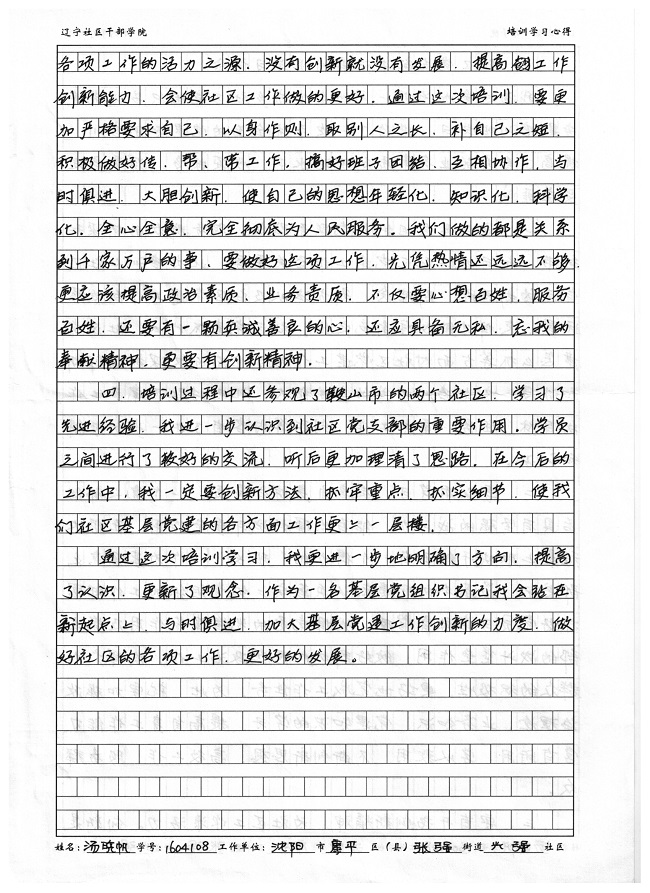 辽宁社区干部学院 培训学习心得
各项工作的活力之源，没有创新就没有发展，提高创工作
创新能力，会使社区工作做的更好，通过这次培训，要更
加严格要求自己，以身作则，取别人之长，补自己之短，
积极做好传、帮、带工作，搞好班子团结，互相协作，与
时俱进，大胆创新，使自己的思想年轻化，知识化，科学
化，全心全意，完全彻底为人民服务。我们做的都是关系
到千家万户的事，要做好这项工作，光凭热情还远远不够，
更应该提高政治素质，业务责质，不仅要心想百姓，服务
百姓，还要有一颗真诚善良的心，还应具备无私，忘我的
奉献精神，更要有创新精神．
四．培训过程中还参观了鞍山市的两个社区，学习了
先进经验，我进一步认识到社区党支部的重要作用。学员
之间进行了较好的交流，听后更加理清了思路，在今后的
工作中，我一定要创新方法，抓牢重点，抓实细节，使我
们社区基层党建的各方面工作更上一层楼．
通过这次培训学习，我更进一步地明确了方向，提高
了认识，更新了观念，作为一名基层党组织书记我会站在
新起点上，与时俱进，加大基层党建工作创新的力度，做
好社区的各项工作，更好的发展。
姓名：汤 帆 学号：1604108 工作单位：沈阳 市 平 区（县）张强 街道 兴强 社区